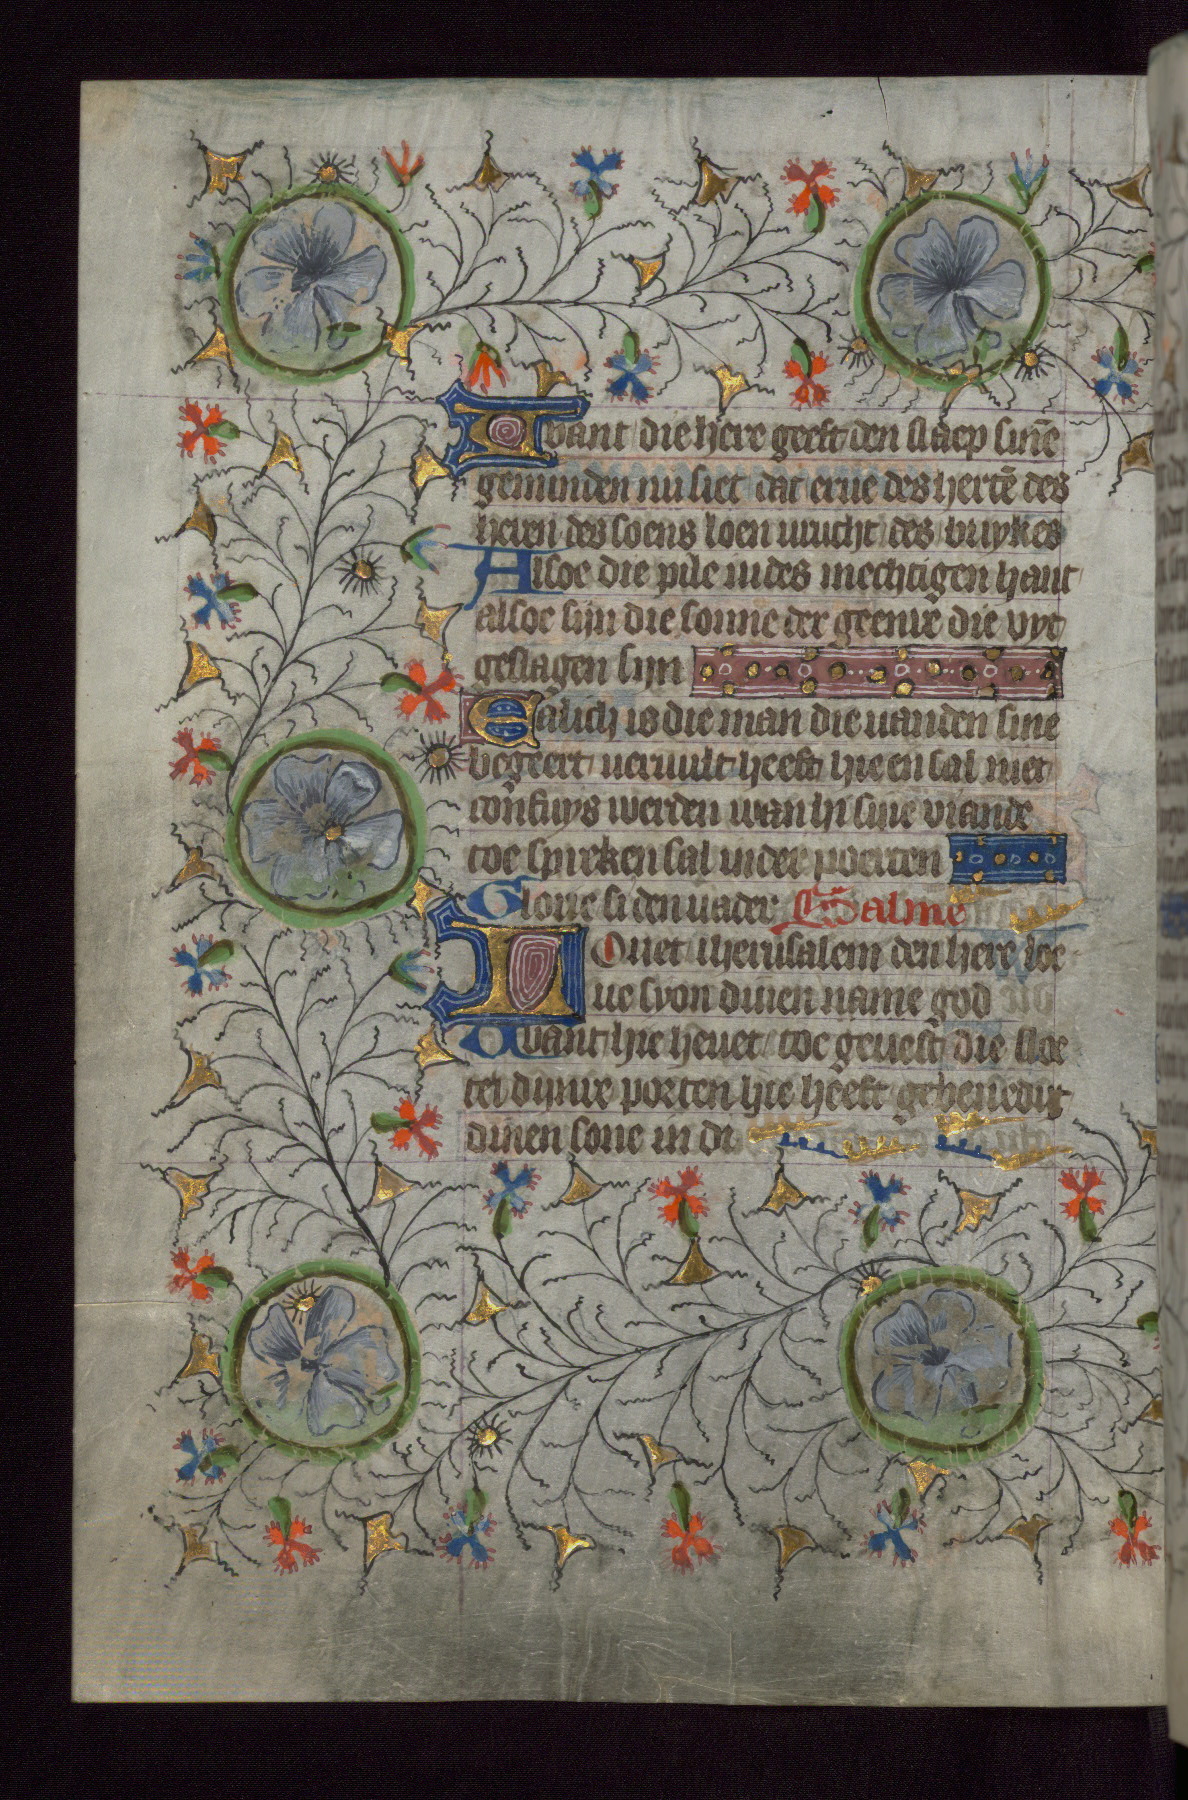 Want die here geeft den slaep sinē
geminden nu siet dat erue des hertē des
heren des soens loen urucht des buykes
Alsoe die pile in des mechtigen hant
alsoe sijn die sonne der geenre die vyt
geslagen sijn
Salich is die man die uanden sine
begeert ueruult heeft hie en sal niet
confuys werden wan hi sine viande
toe spreken sal in der poerten
Glorie si den uader Salme
Louet iherusalem den here loe
ue syon dinen name god
Want hie heuet toe geuest die sloe
tel dijnre porten hie heeft gebenedijt
dinen sone in di